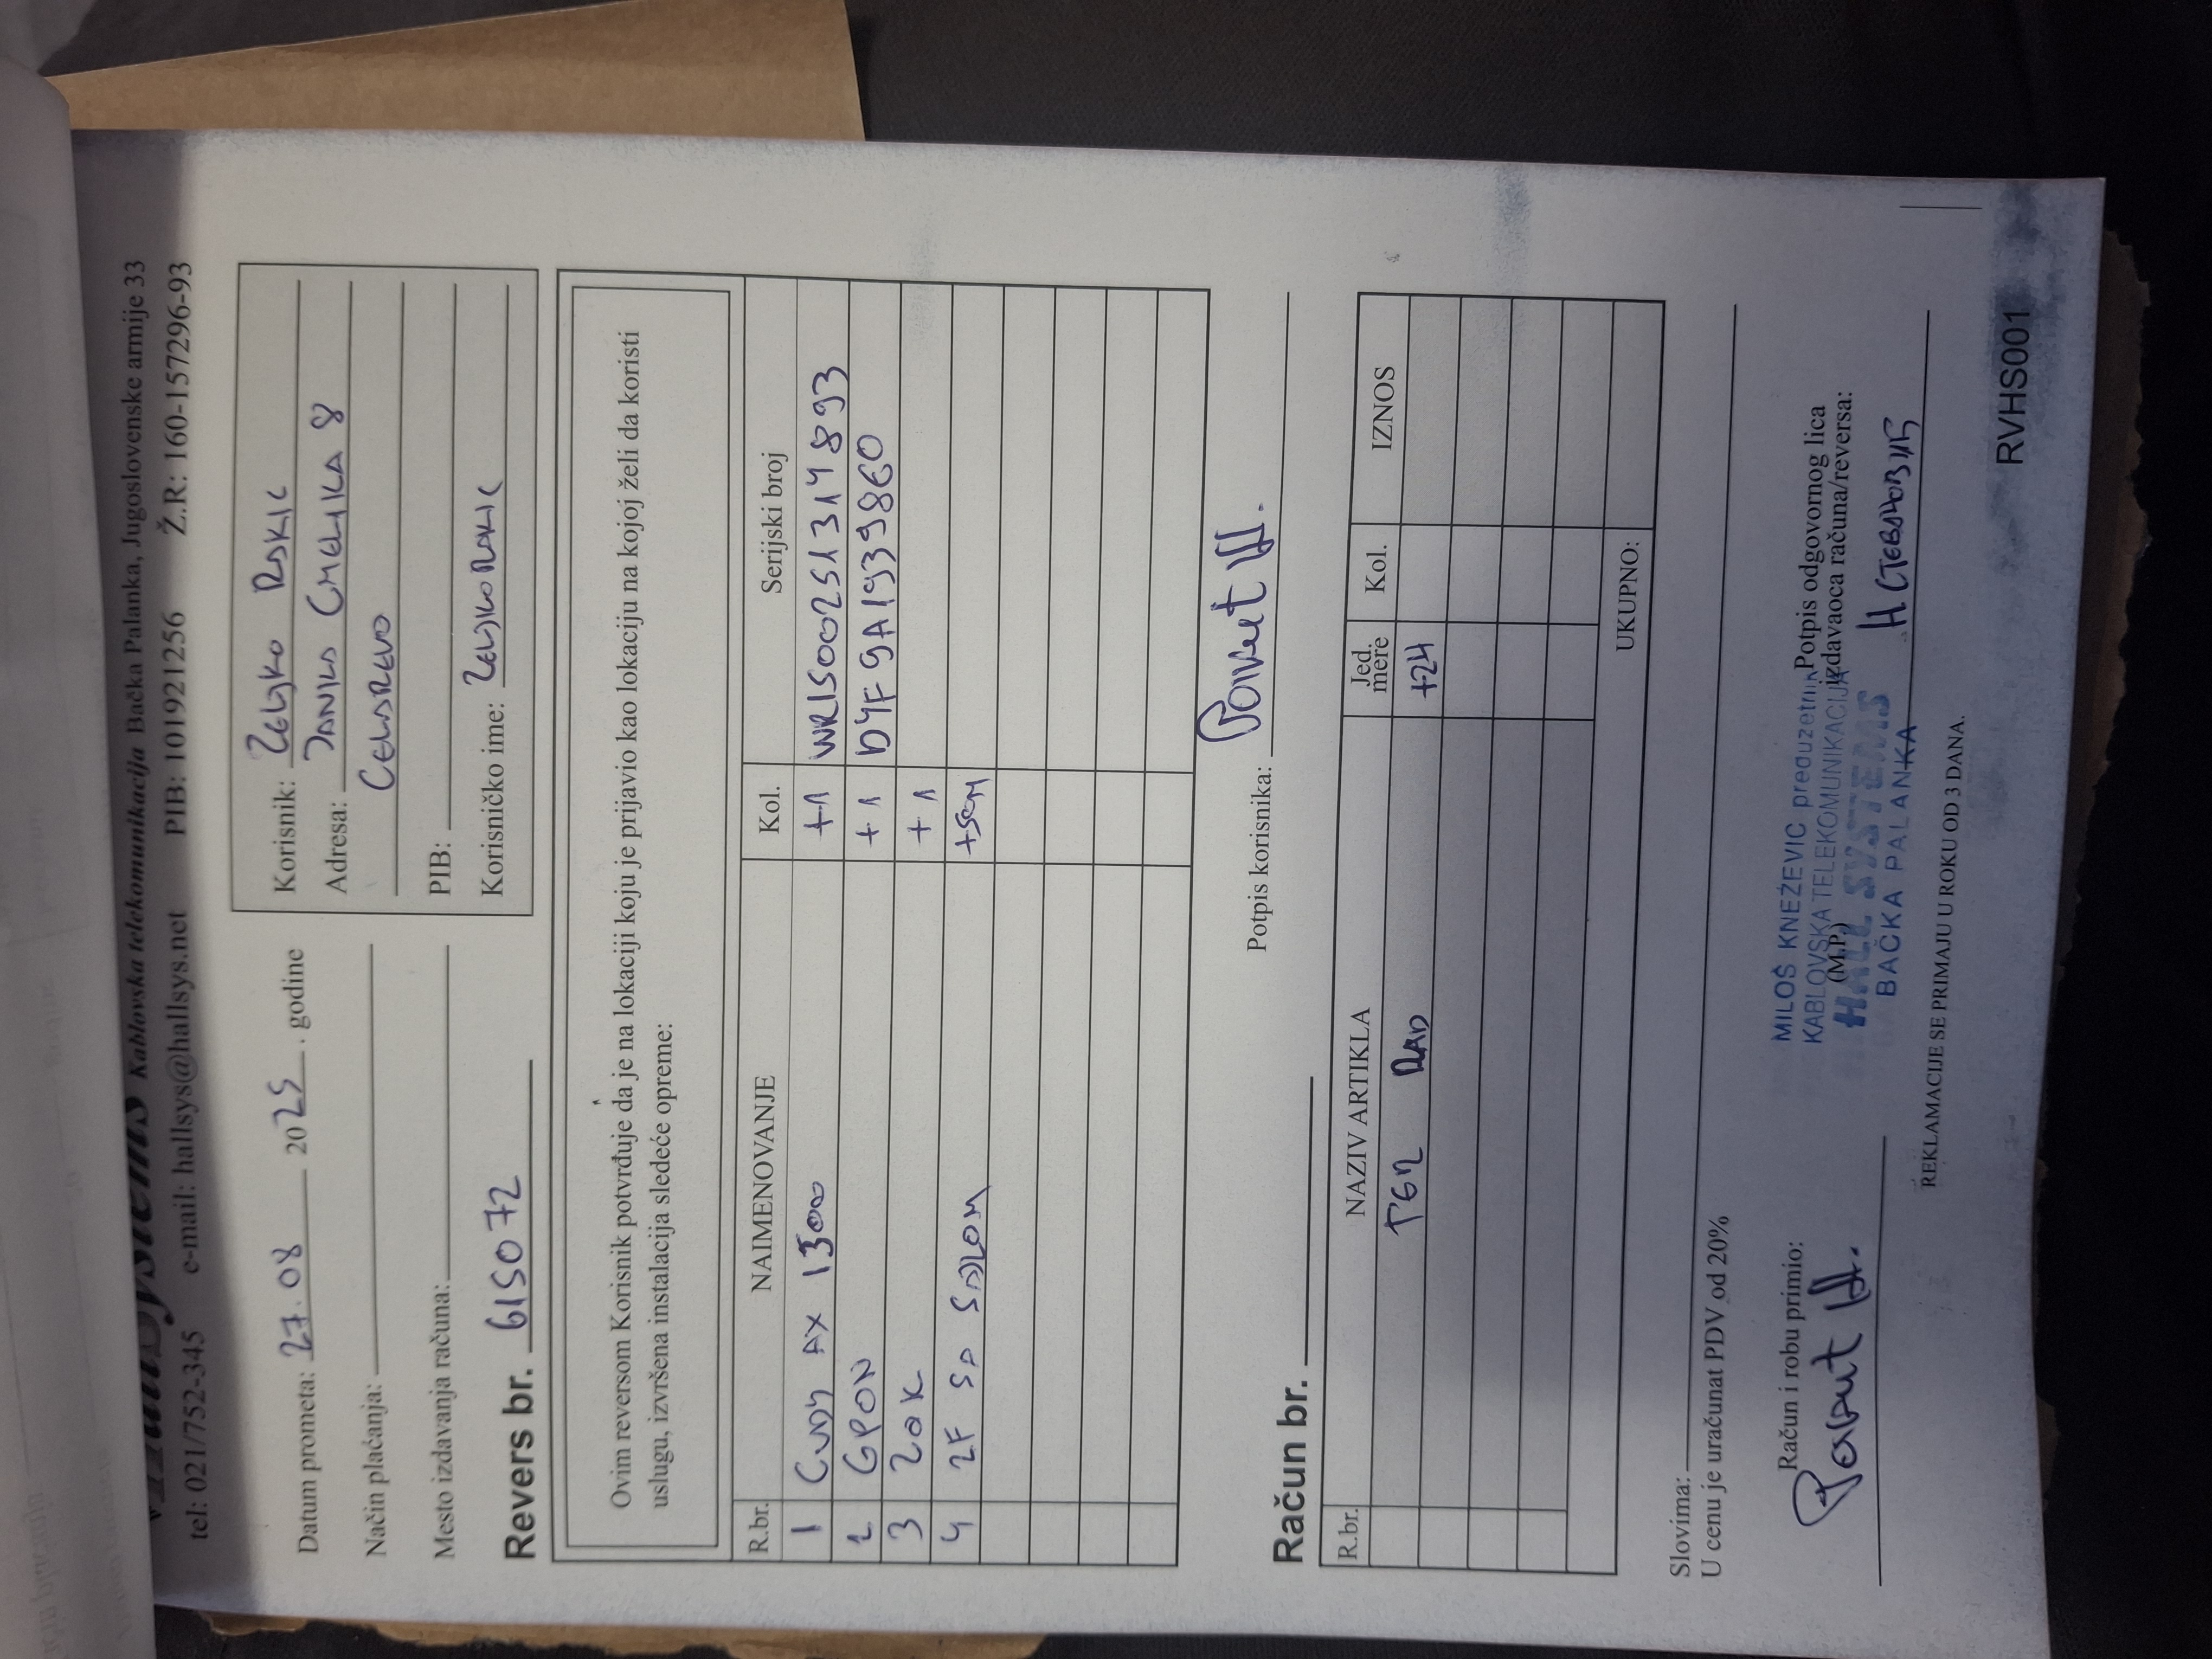 HallSystems Kablovska telekomunikacija Bačka Palanka, Jugoslovenske armije 33
tel: 021/752-345 e-mail: hallsys@hallsys.net PIB: 101921256 Ž.R: 160-157296-93
Datum prometa: 27.08 2025. godine
Način plaćanja:
Mesto izdavanja računa:
Revers br. 615072
Korisnik: ZELJKO RAKIC
Adresa: JANKA CMELIKA 8
CELAREVO
PIB:
Korisničko ime: ZELJKORAKIC
Ovim reversom Korisnik potvrđuje da je na lokaciji koju je prijavio kao lokaciju na kojoj želi da koristi
uslugu, izvršena instalacija sledeće opreme:
R.br. NAIMENOVANJE Kol. Serijski broj
1 CUDY AX 1500 +1 WR1500251314893
2 GPON +1 D4F9A1939860
3 ZOK +1
4 2F SA SAJLOM +50M
Potpis korisnika:
Račun br.
R.br. NAZIV ARTIKLA Jed. mere Kol. IZNOS
RAD +2H
UKUPNO:
Slovima:
U cenu je uračunat PDV od 20%
Račun i robu primio:
MILOŠ KNEŽEVIĆ preduzetnik
KABLOVSKA TELEKOMUNIKACIJA
(M.P.)
HALL SYSTEMS
BAČKA PALANKA
Potpis odgovornog lica
izdavaoca računa/reversa:
Н СТЕВАНОВИЋ
REKLAMACIJE SE PRIMAJU U ROKU OD 3 DANA.
RVHS001